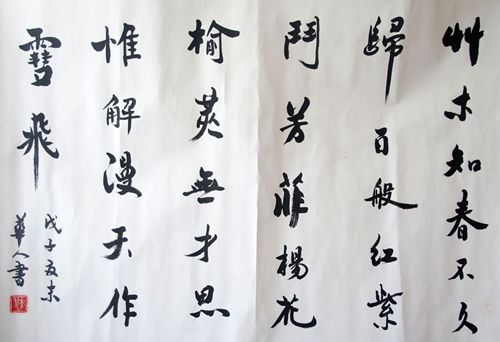 艸木知春不久
歸百般紅紫
鬥芳菲楊花
榆莢無才思
惟解漫天作
雪飛
戊子夏末
華人書